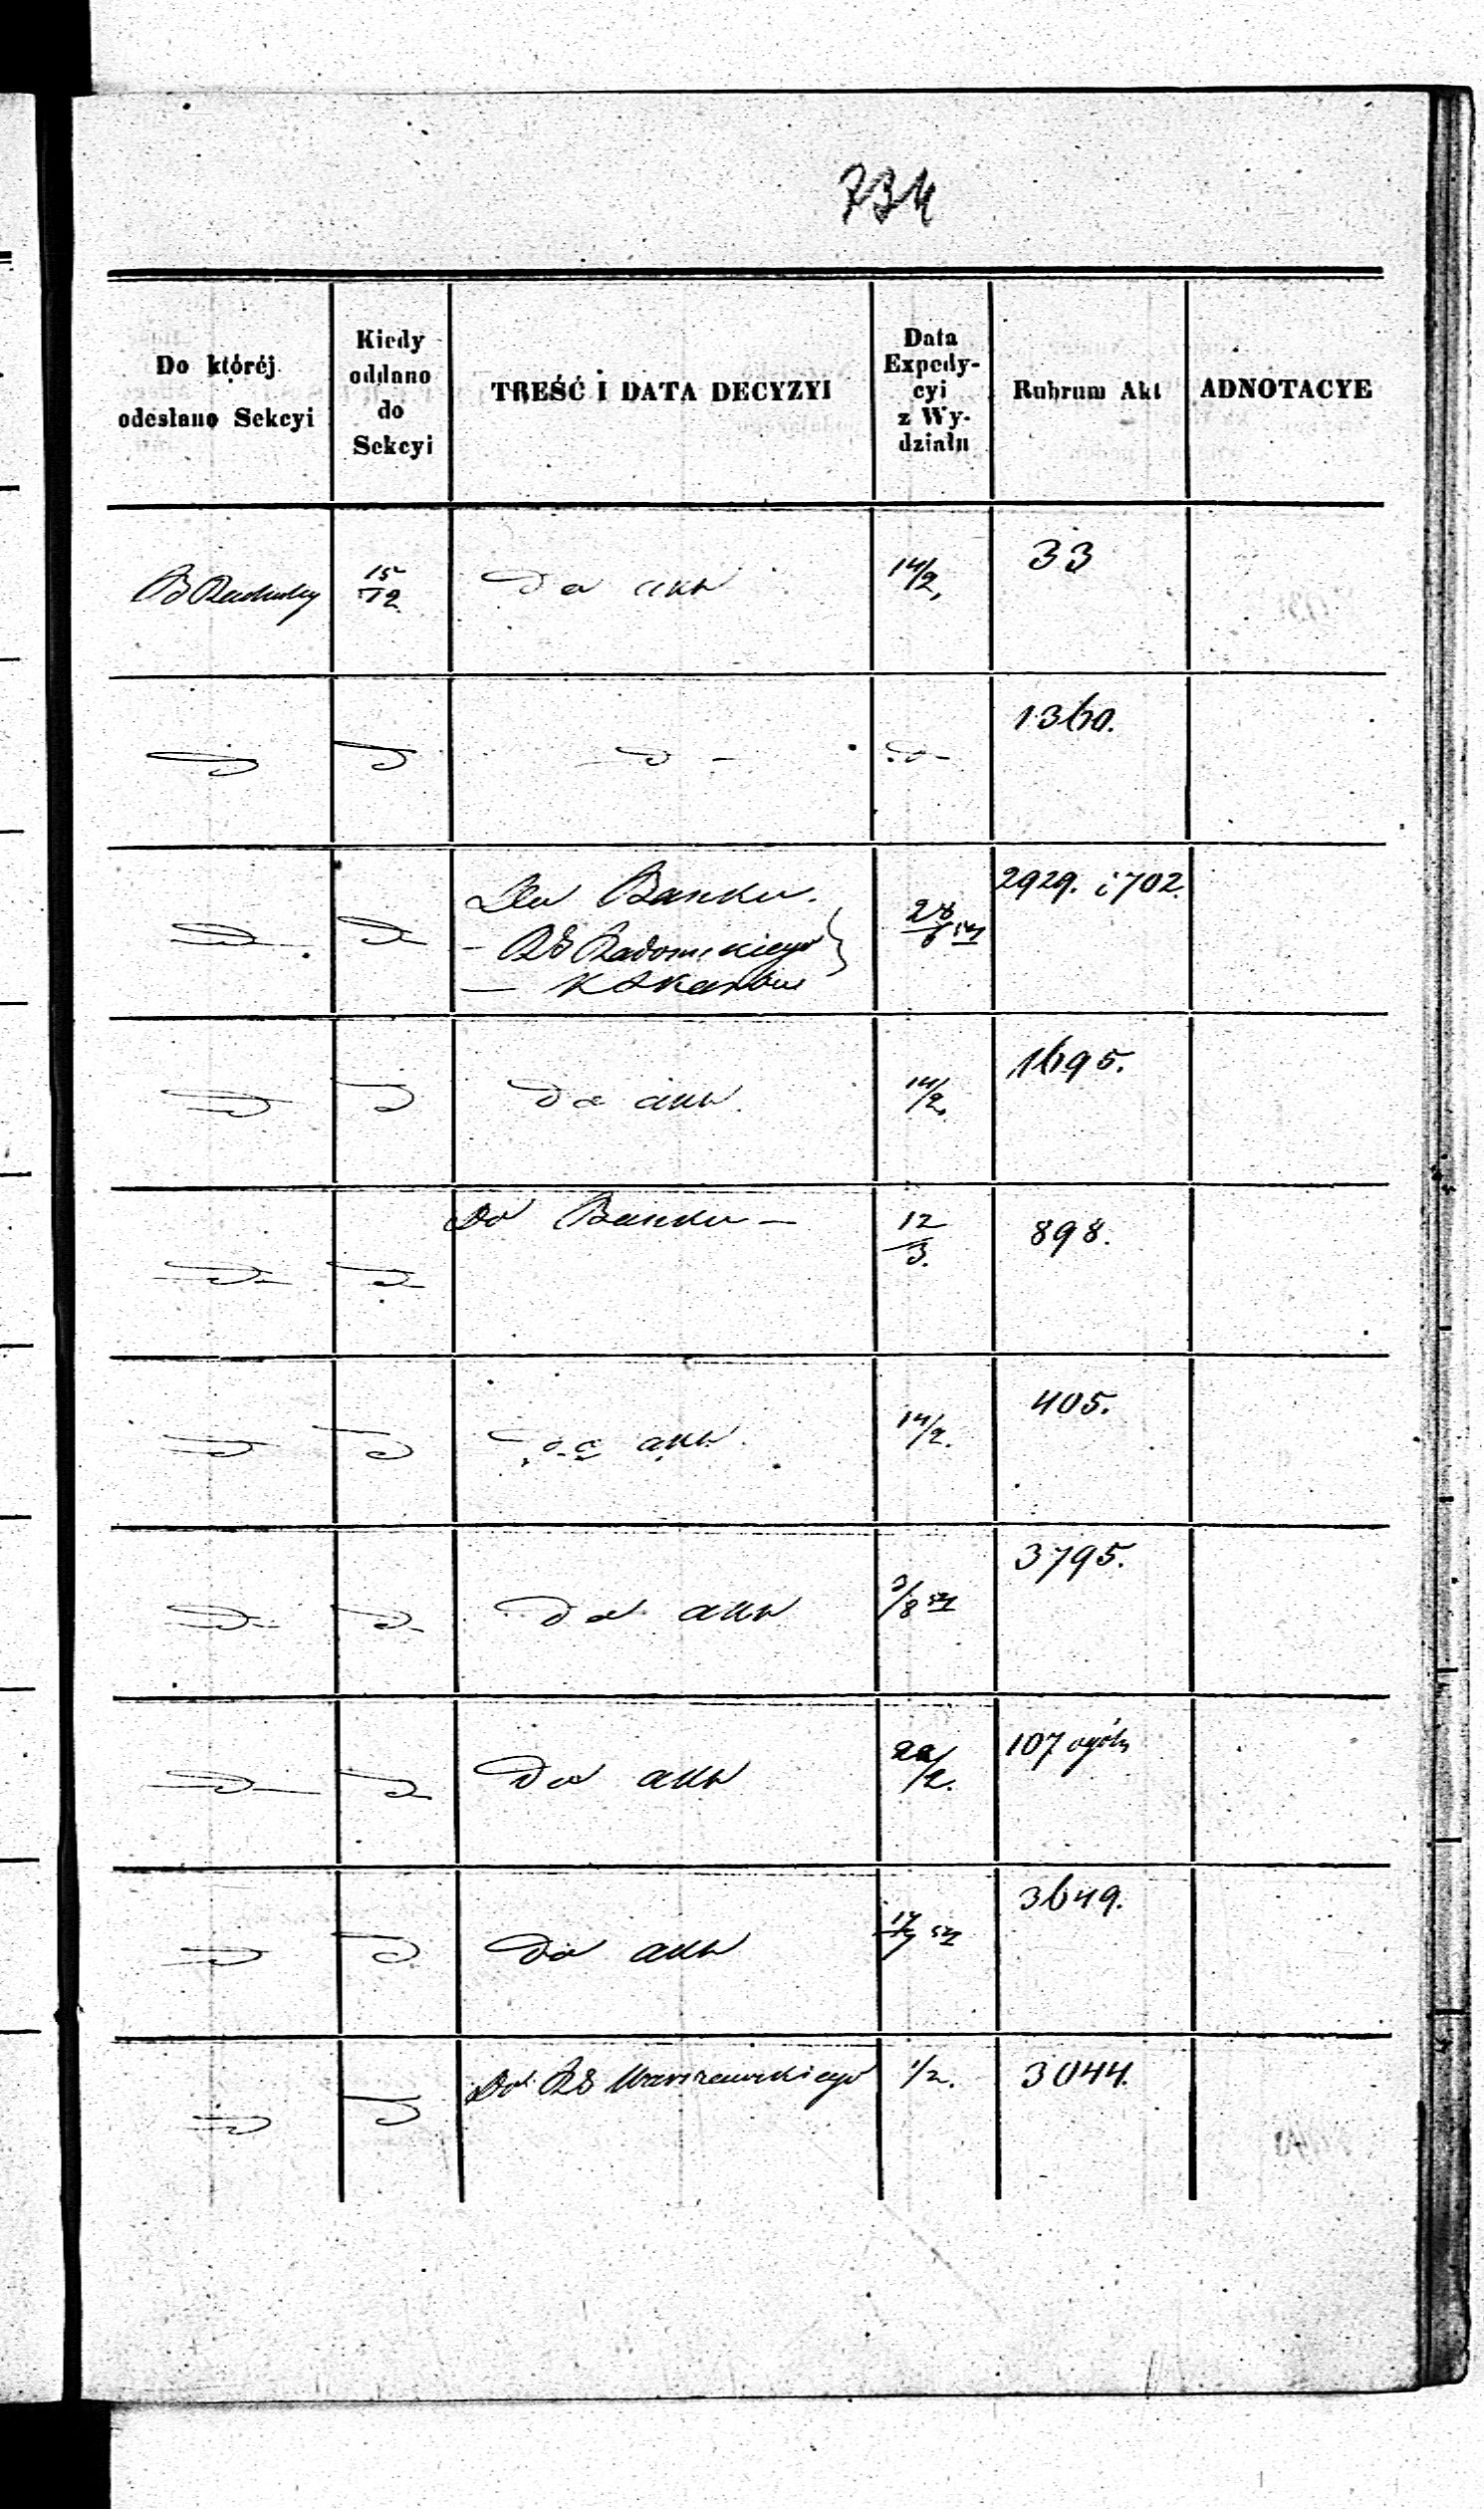 734
Do któréj odesłano Sekcyi | Kiedy oddano do Sekcyi | TREŚĆ I DATA DECYZYI | Data Expedycyi z Wydziału | Rubrum Akt | ADNOTACYE
15/12 | Do akt | 14/2, | 33
D | D | D - | D - | 1360.
D | D | Do Banku. | 28/6 | 2929. i 702.
- RG Radomskiego
—
D | D | Do akt | 14/2. | 1695.
D | D | Do Banku — | 12/3. | 898.
D | D | Do akt. | 14/2. | 405.
D | D | Do akt | 3/8 | 3795.
D | D | Do akt | 22/2. | 107 ogóln
D | D | Do akt | 17/7 | 3649.
D | D | Do RG Warszawskiego | 1/2. | 3044.